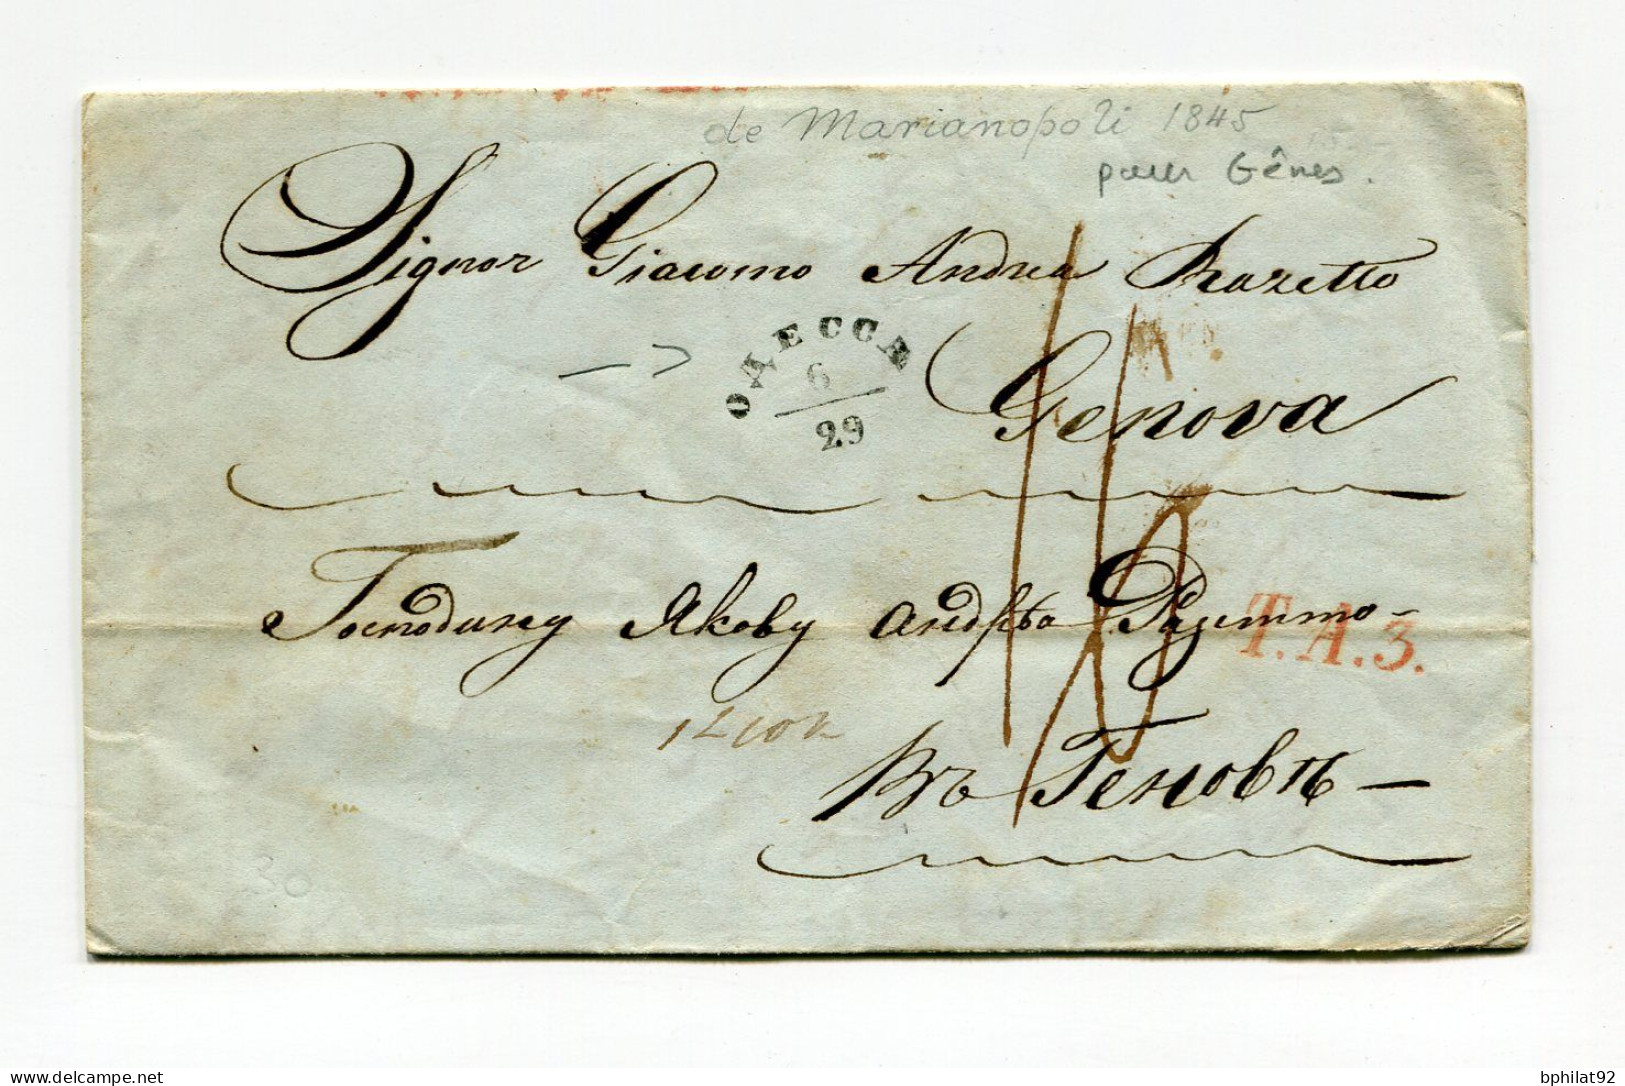 de Marianopoli 1845
15.-
pour Gênes.
Signor Giacomo Andrea Razetto
ОДЕССА
6
29
Genova
Господину Якову Андрѣа Разетто-
T.A.3.
въ Геновѣ-
30
delcampe.net
bphilat92